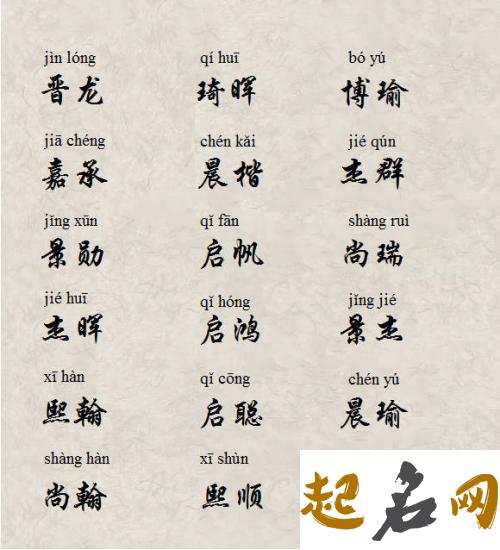 jìn lóng qí huī bó yú
晋龙 琦晖 博瑜
jiā chéng chén kǎi jié qún
嘉承 晨楷 杰群
jǐng xūn qǐ fān shàng ruì
景勋 启帆 尚瑞
jié huī qǐ hóng jǐng jié
杰晖 启鸿 景杰
xī hàn qǐ cōng chén yú
熙翰 启聪 晨瑜
shàng hàn xī shùn
尚翰 熙顺
起名网